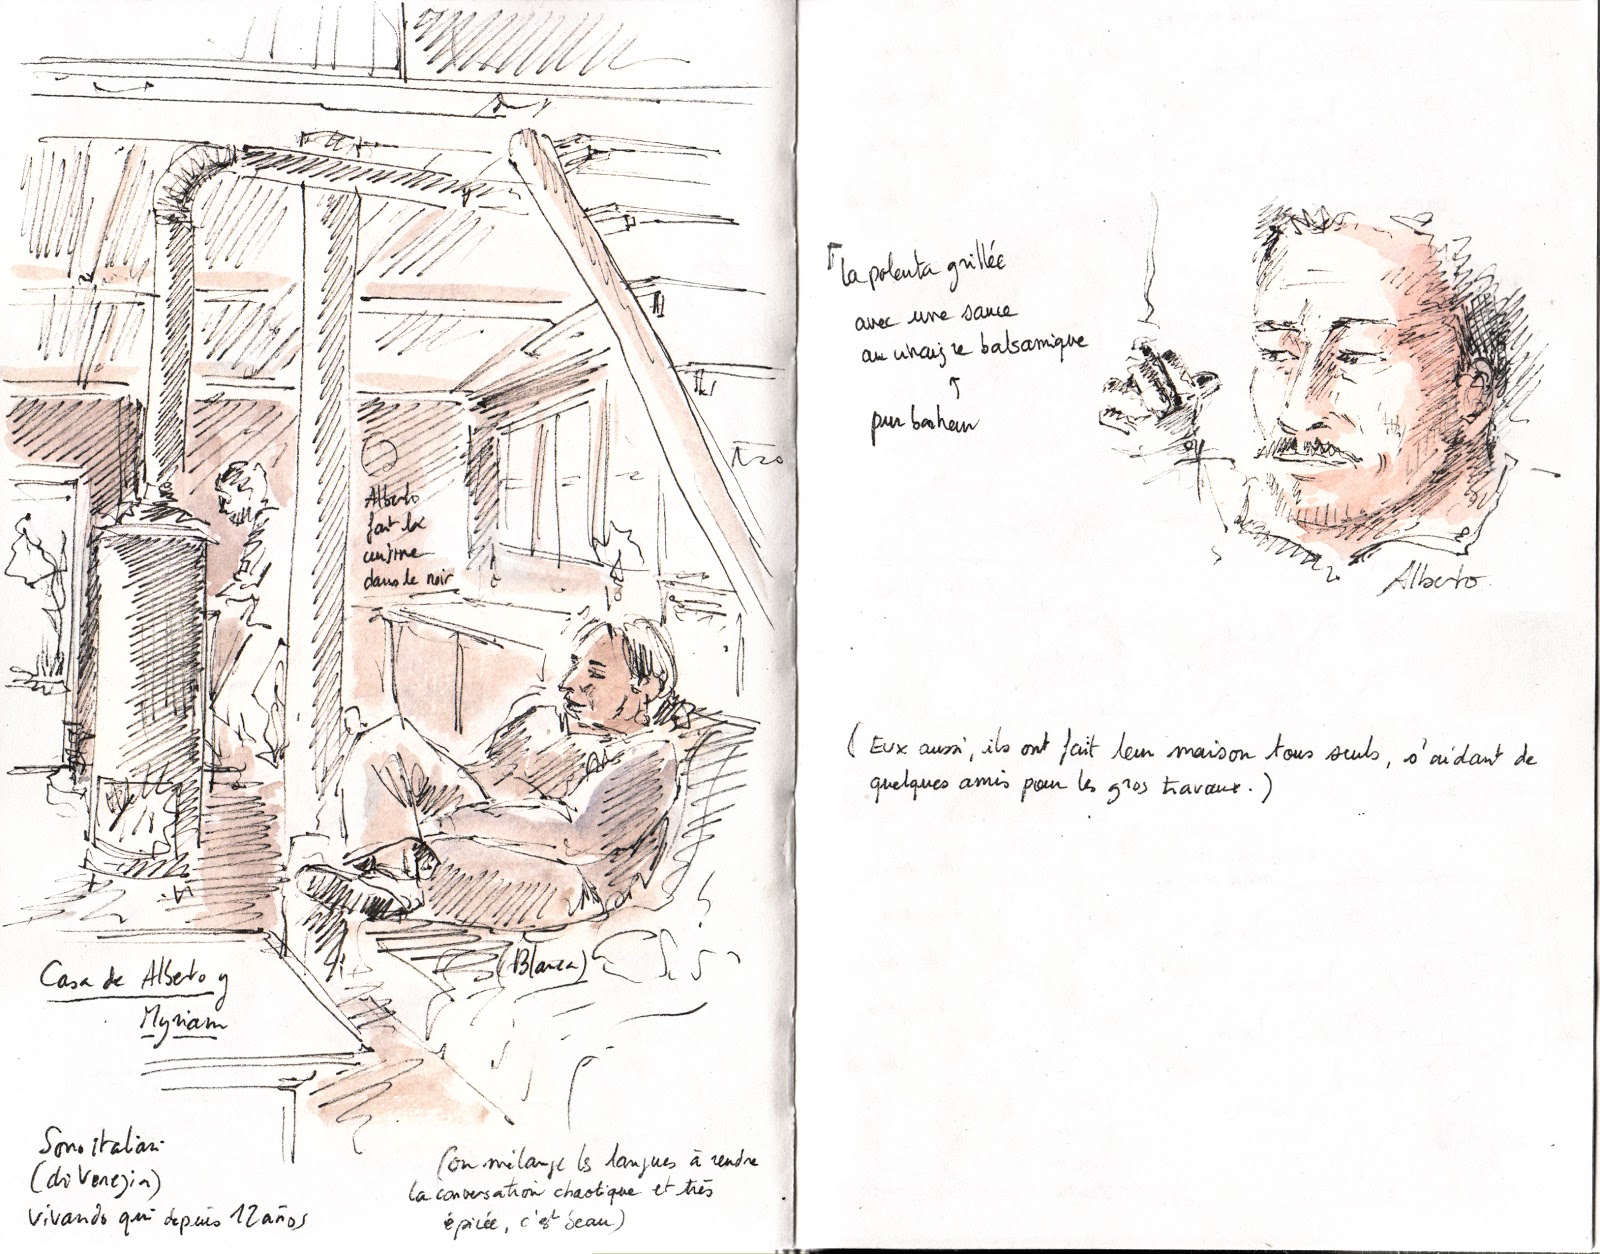 Alberto
fait la
cuisine
dans le noir
(Blanca)
Casa de Alberto y
Myriam
Sono italiani
(di Venezia)
vivando qui depuis 12 años
(on mélange les langues à rendre
la conversation chaotique et très
épicée, c'est beau)
la polenta grillée
avec une sauce
au vinaigre balsamique
pur bonheur
Alberto
(Eux aussi, ils ont fait leur maison tous seuls, s'aidant de
quelques amis pour les gros travaux.)